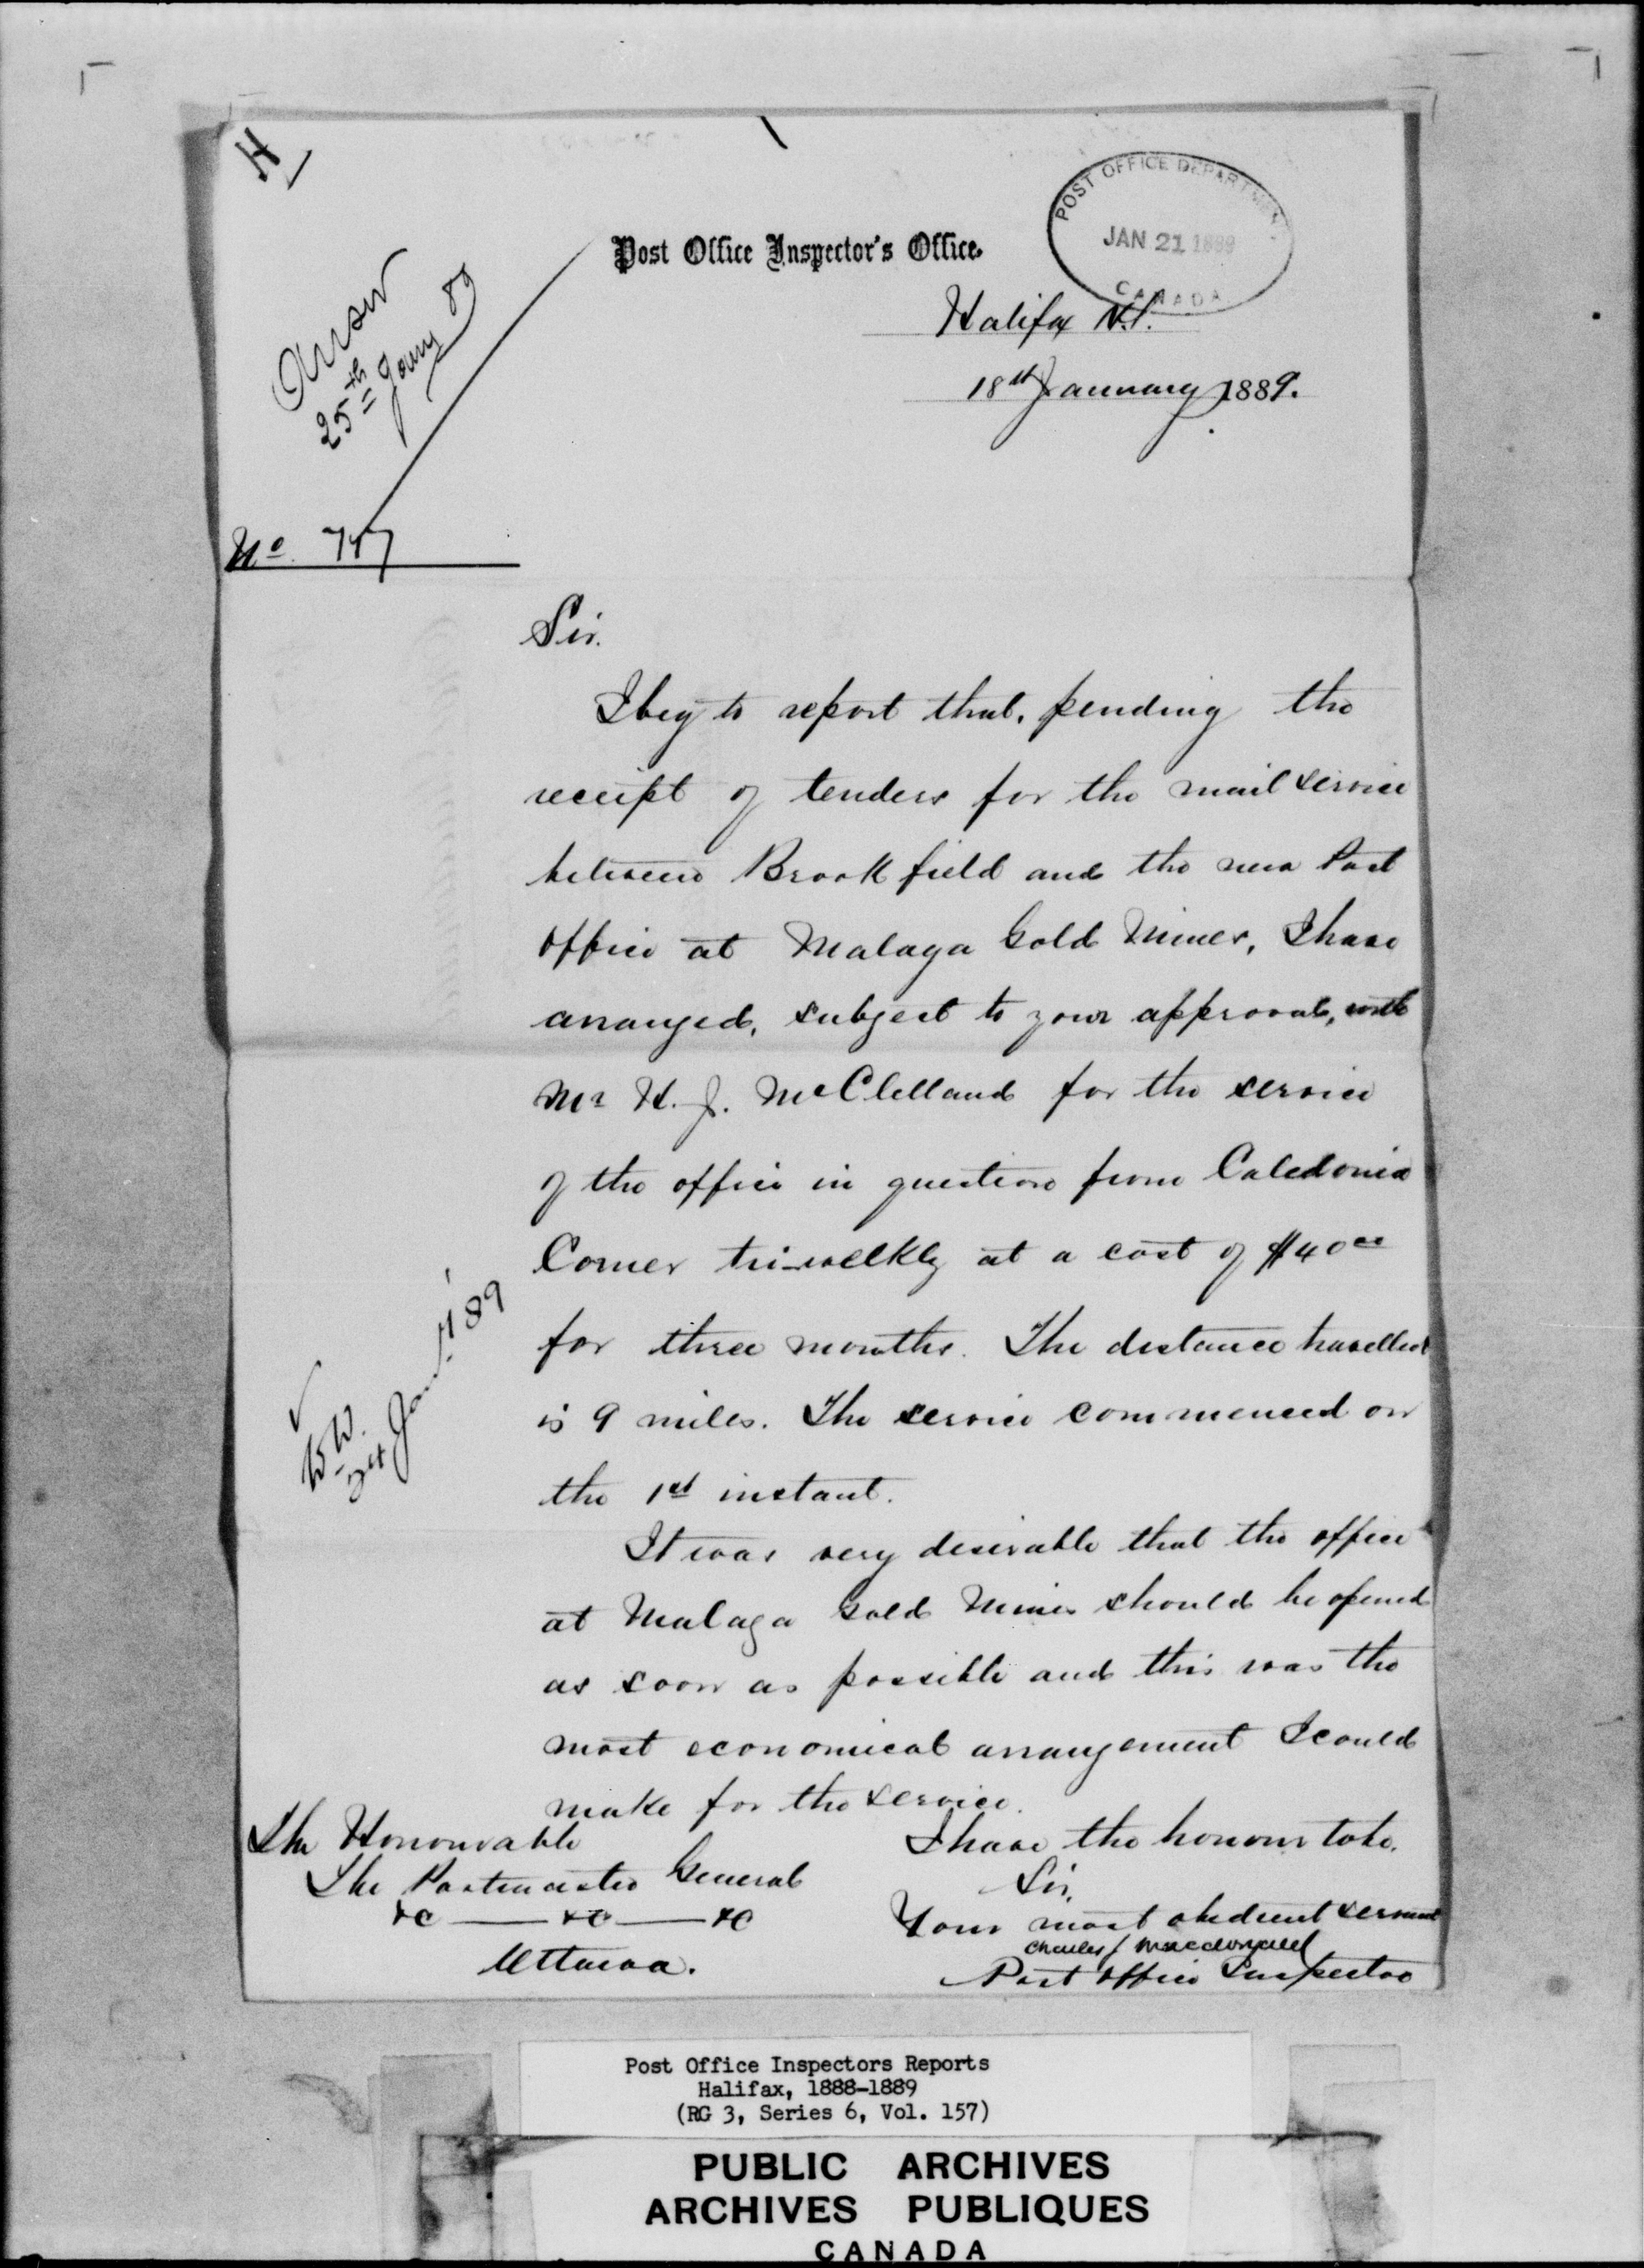 H
POST OFFICE DEPARTMENT
JAN 21 1889
CANADA
Post Office Inspector's Office.
Halifax N.S.
18th January 1889.
Answ
25th Jany 89
No. 747
Sir.
I beg to report that, pending the
receipt of tenders for the mail service
between Brookfield and the new Post
Office at Malaga Gold Mines, I have
arranged, subject to your approval, with
Mr H. J. McClelland for the service
of the office in question from Caledonia
Corner tri-weekly at a cost of $40 00
for three months. The distance travelled
is 9 miles. The service commenced on
the 1st instant.
W.W.
24 Jan. 89
It was very desirable that the office
at Malaga Gold Mines should be opened
as soon as possible and this was the
most economical arrangement I could
make for the service.
I have the honour to be,
Sir,
Your most obedient servant
Charles J Macdonald
Post Office Inspector
The Honourable
The Postmaster General
&c — &c — &c
Ottawa.
Post Office Inspectors Reports
Halifax, 1888-1889
(RG 3, Series 6, Vol. 157)
PUBLIC ARCHIVES
ARCHIVES PUBLIQUES
CANADA